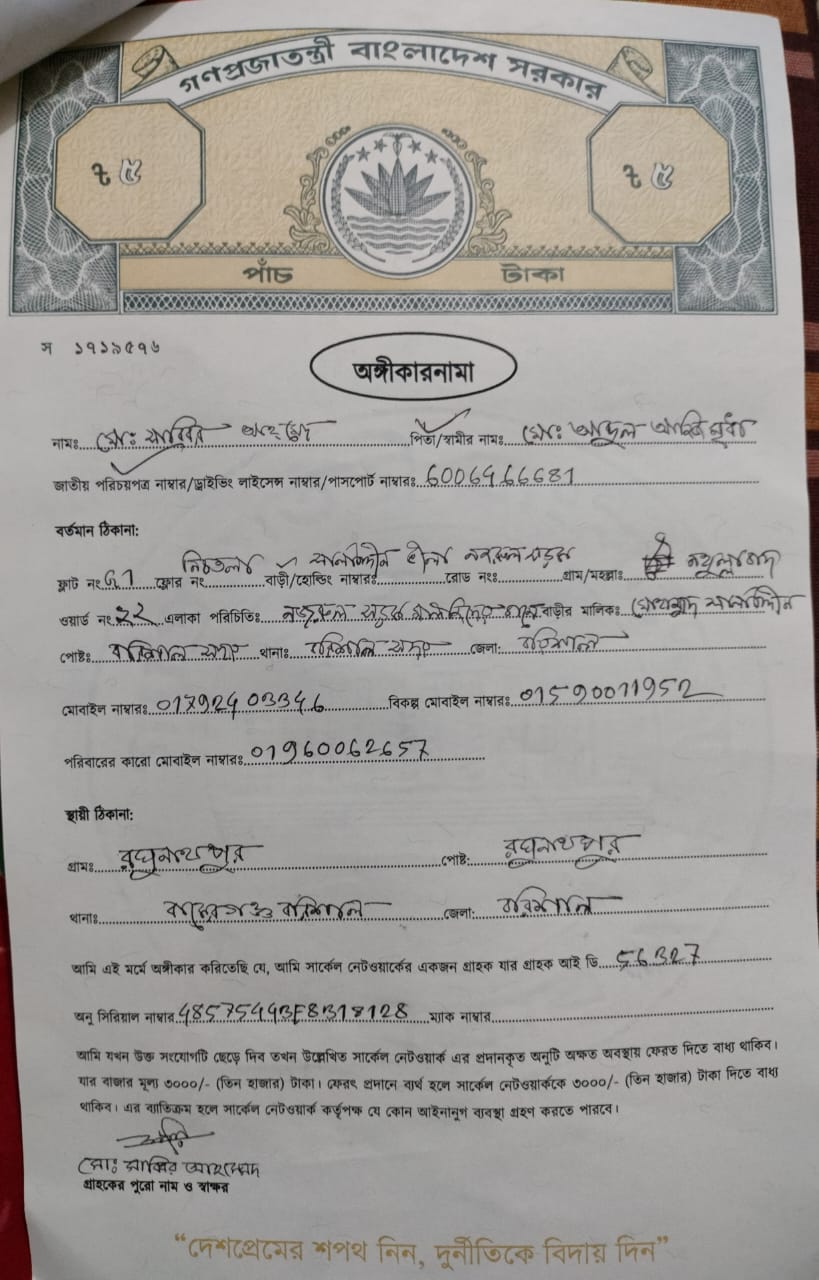 গণপ্রজাতন্ত্রী বাংলাদেশ সরকার
৳ ৫ ৳ ৫
পাঁচ টাকা
স ১৭১৯৫৭৬
অঙ্গীকারনামা
নামঃ মোঃ সাব্বির আহম্মেদ পিতা/স্বামীর নামঃ মোঃ আব্দুল
জাতীয় পরিচয়পত্র নাম্বার/ড্রাইভিং লাইসেন্স নাম্বার/পাসপোর্ট নাম্বারঃ 6006466681
বর্তমান ঠিকানা:
ফ্লাট নং G1 ফ্লোর নং নিচতলা বাড়ী/হোল্ডিং নাম্বারঃ রোড নং গ্রাম/মহল্লাঃ
ওয়ার্ড নং ২২ এলাকা পরিচিতিঃ নজরুল সড়ক বাড়ীর মালিকঃ
পোষ্টঃ বরিশাল সদর থানাঃ বরিশাল সদর জেলা: বরিশাল
মোবাইল নাম্বারঃ 01792403346 বিকল্প মোবাইল নাম্বারঃ 01590011952
পরিবারের কারো মোবাইল নাম্বারঃ 01960062657
স্থায়ী ঠিকানা:
গ্রামঃ রঘুনাথপুর পোষ্ট: রঘুনাথপুর
থানাঃ বাকেরগঞ্জ বরিশাল জেলা: বরিশাল
আমি এই মর্মে অঙ্গীকার করিতেছি যে, আমি সার্কেল নেটওয়ার্কের একজন গ্রাহক যার গ্রাহক আই ডি 56327
অনু সিরিয়াল নাম্বার 48575443F8B18128 ম্যাক নাম্বার
আমি যখন উক্ত সংযোগটি ছেড়ে দিব তখন উল্লেখিত সার্কেল নেটওয়ার্ক এর প্রদানকৃত অনুটি অক্ষত অবস্থায় ফেরত দিতে বাধ্য থাকিব।
যার বাজার মূল্য ৩০০০/- (তিন হাজার) টাকা। ফেরৎ প্রদানে ব্যর্থ হলে সার্কেল নেটওয়ার্ককে ৩০০০/- (তিন হাজার) টাকা দিতে বাধ্য
থাকিব। এর ব্যতিক্রম হলে সার্কেল নেটওয়ার্ক কর্তৃপক্ষ যে কোন আইনানুগ ব্যবস্থা গ্রহণ করতে পারবে।
মোঃ সাব্বির আহম্মেদ
গ্রাহকের পুরো নাম ও স্বাক্ষর
“দেশপ্রেমের শপথ নিন, দুর্নীতিকে বিদায় দিন”